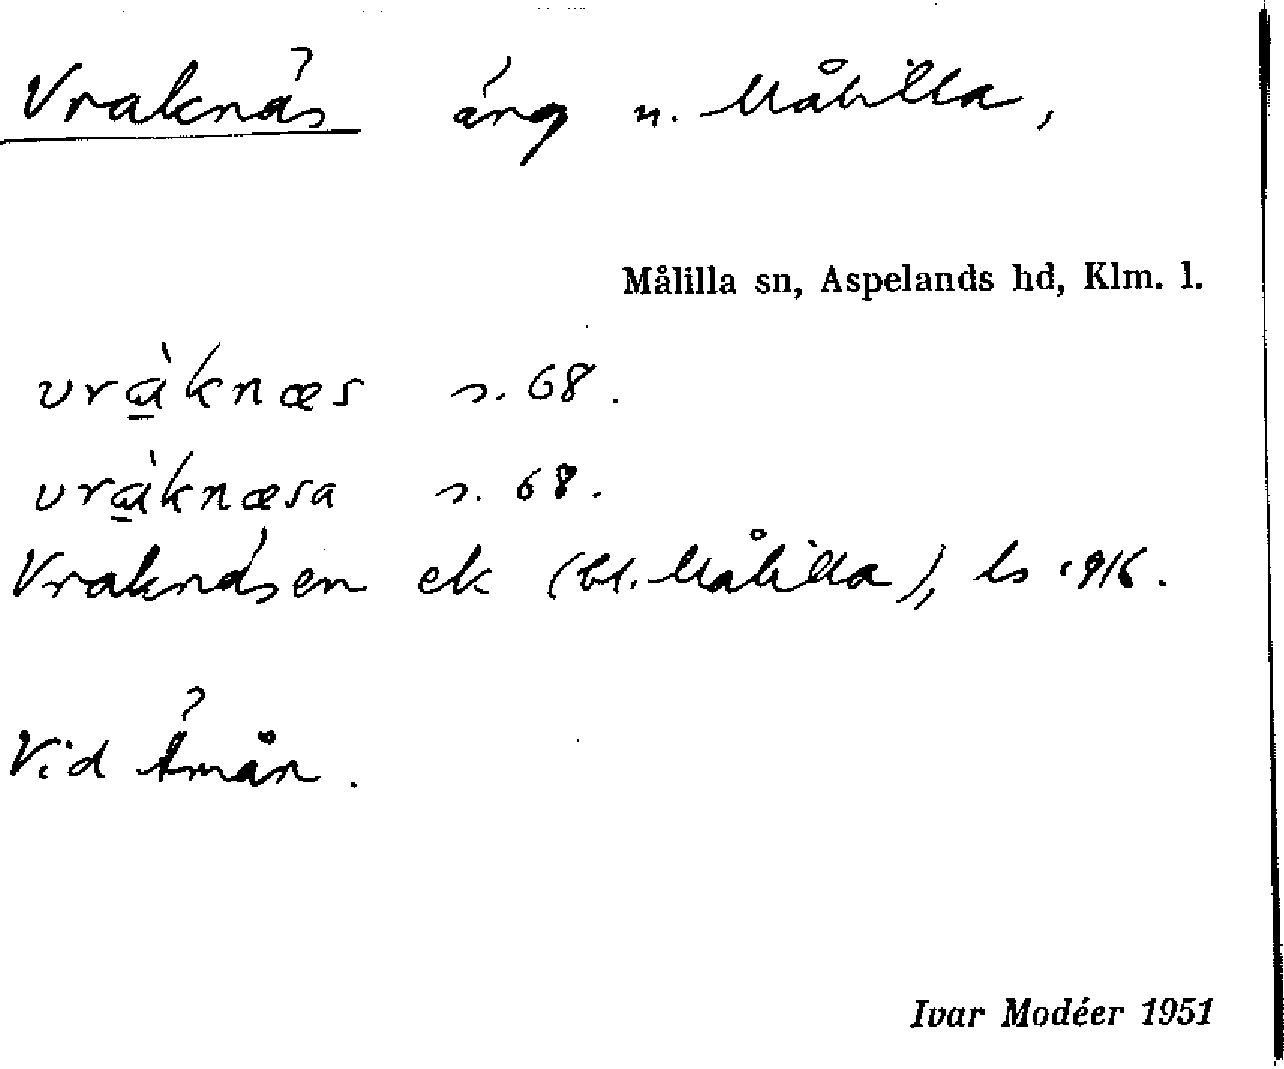 Vraknäs äng n. Målilla,
Målilla sn, Aspelands hd, Klm. l.
vràknæs s. 68.
vràknæsa s. 68.
Vraknäsen ek (bl. Målilla), ls 1916.
Vid Åmån.
Ivar Modéer 1951